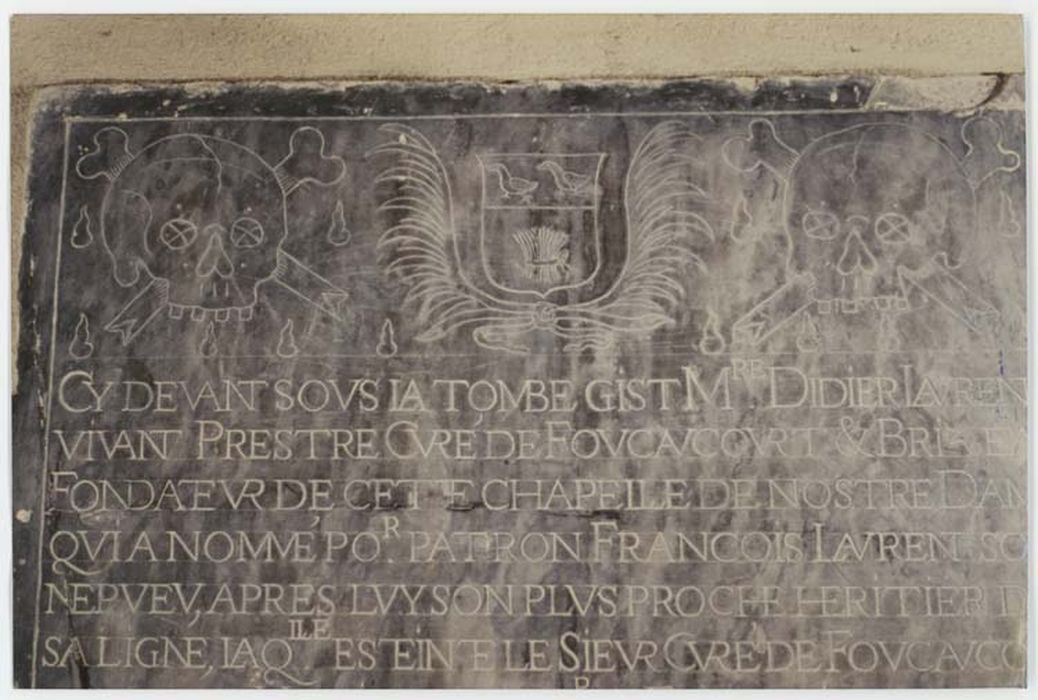 CY DEVANT SOVS LA TOMBE GIST M^RE DIDIER LAVRENT
VIVANT PRESTRE CVRE DE FOVCAVCOVRT &
FONDATEVR DE CETTE CHAPELLE DE NOSTRE DAM
QVI A NOMME PO^R PATRON FRANCOIS LAVRENT SO
NEPVEV, APRES LVY SON PLVS PROCHE HERITIER D
SA LIGNE, LAQ^LLE ESTEINTE LE SIEVR CVRE DE FOVCAVCO